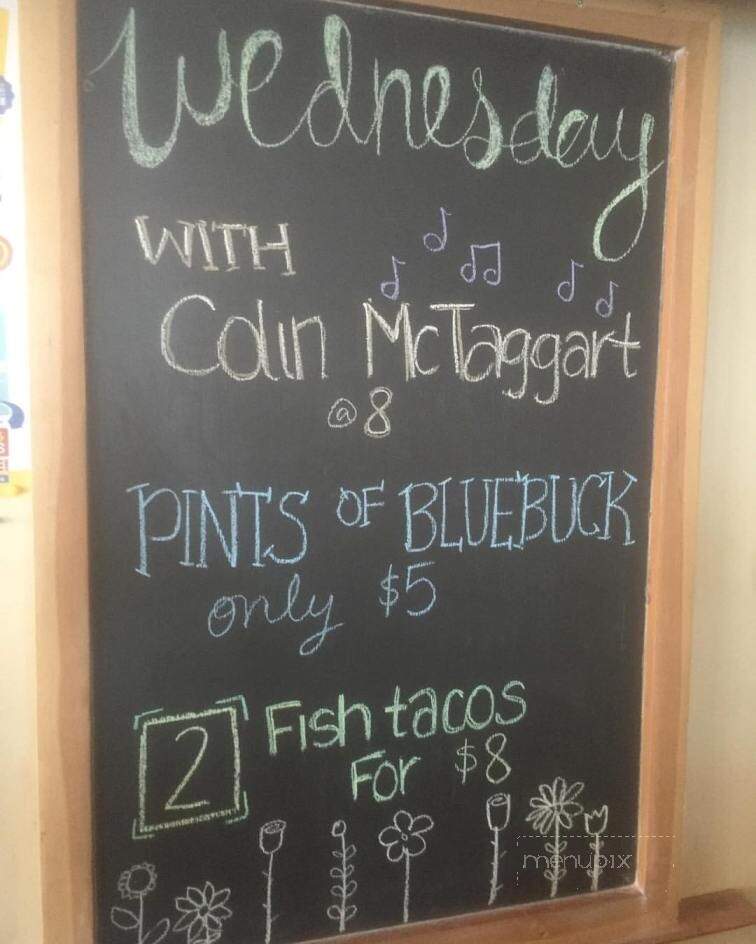 Wednesday
WITH
Colin McTaggart
@8
PINTS OF BLUEBUCK
only $5
2 Fish tacos
For $8
menupix